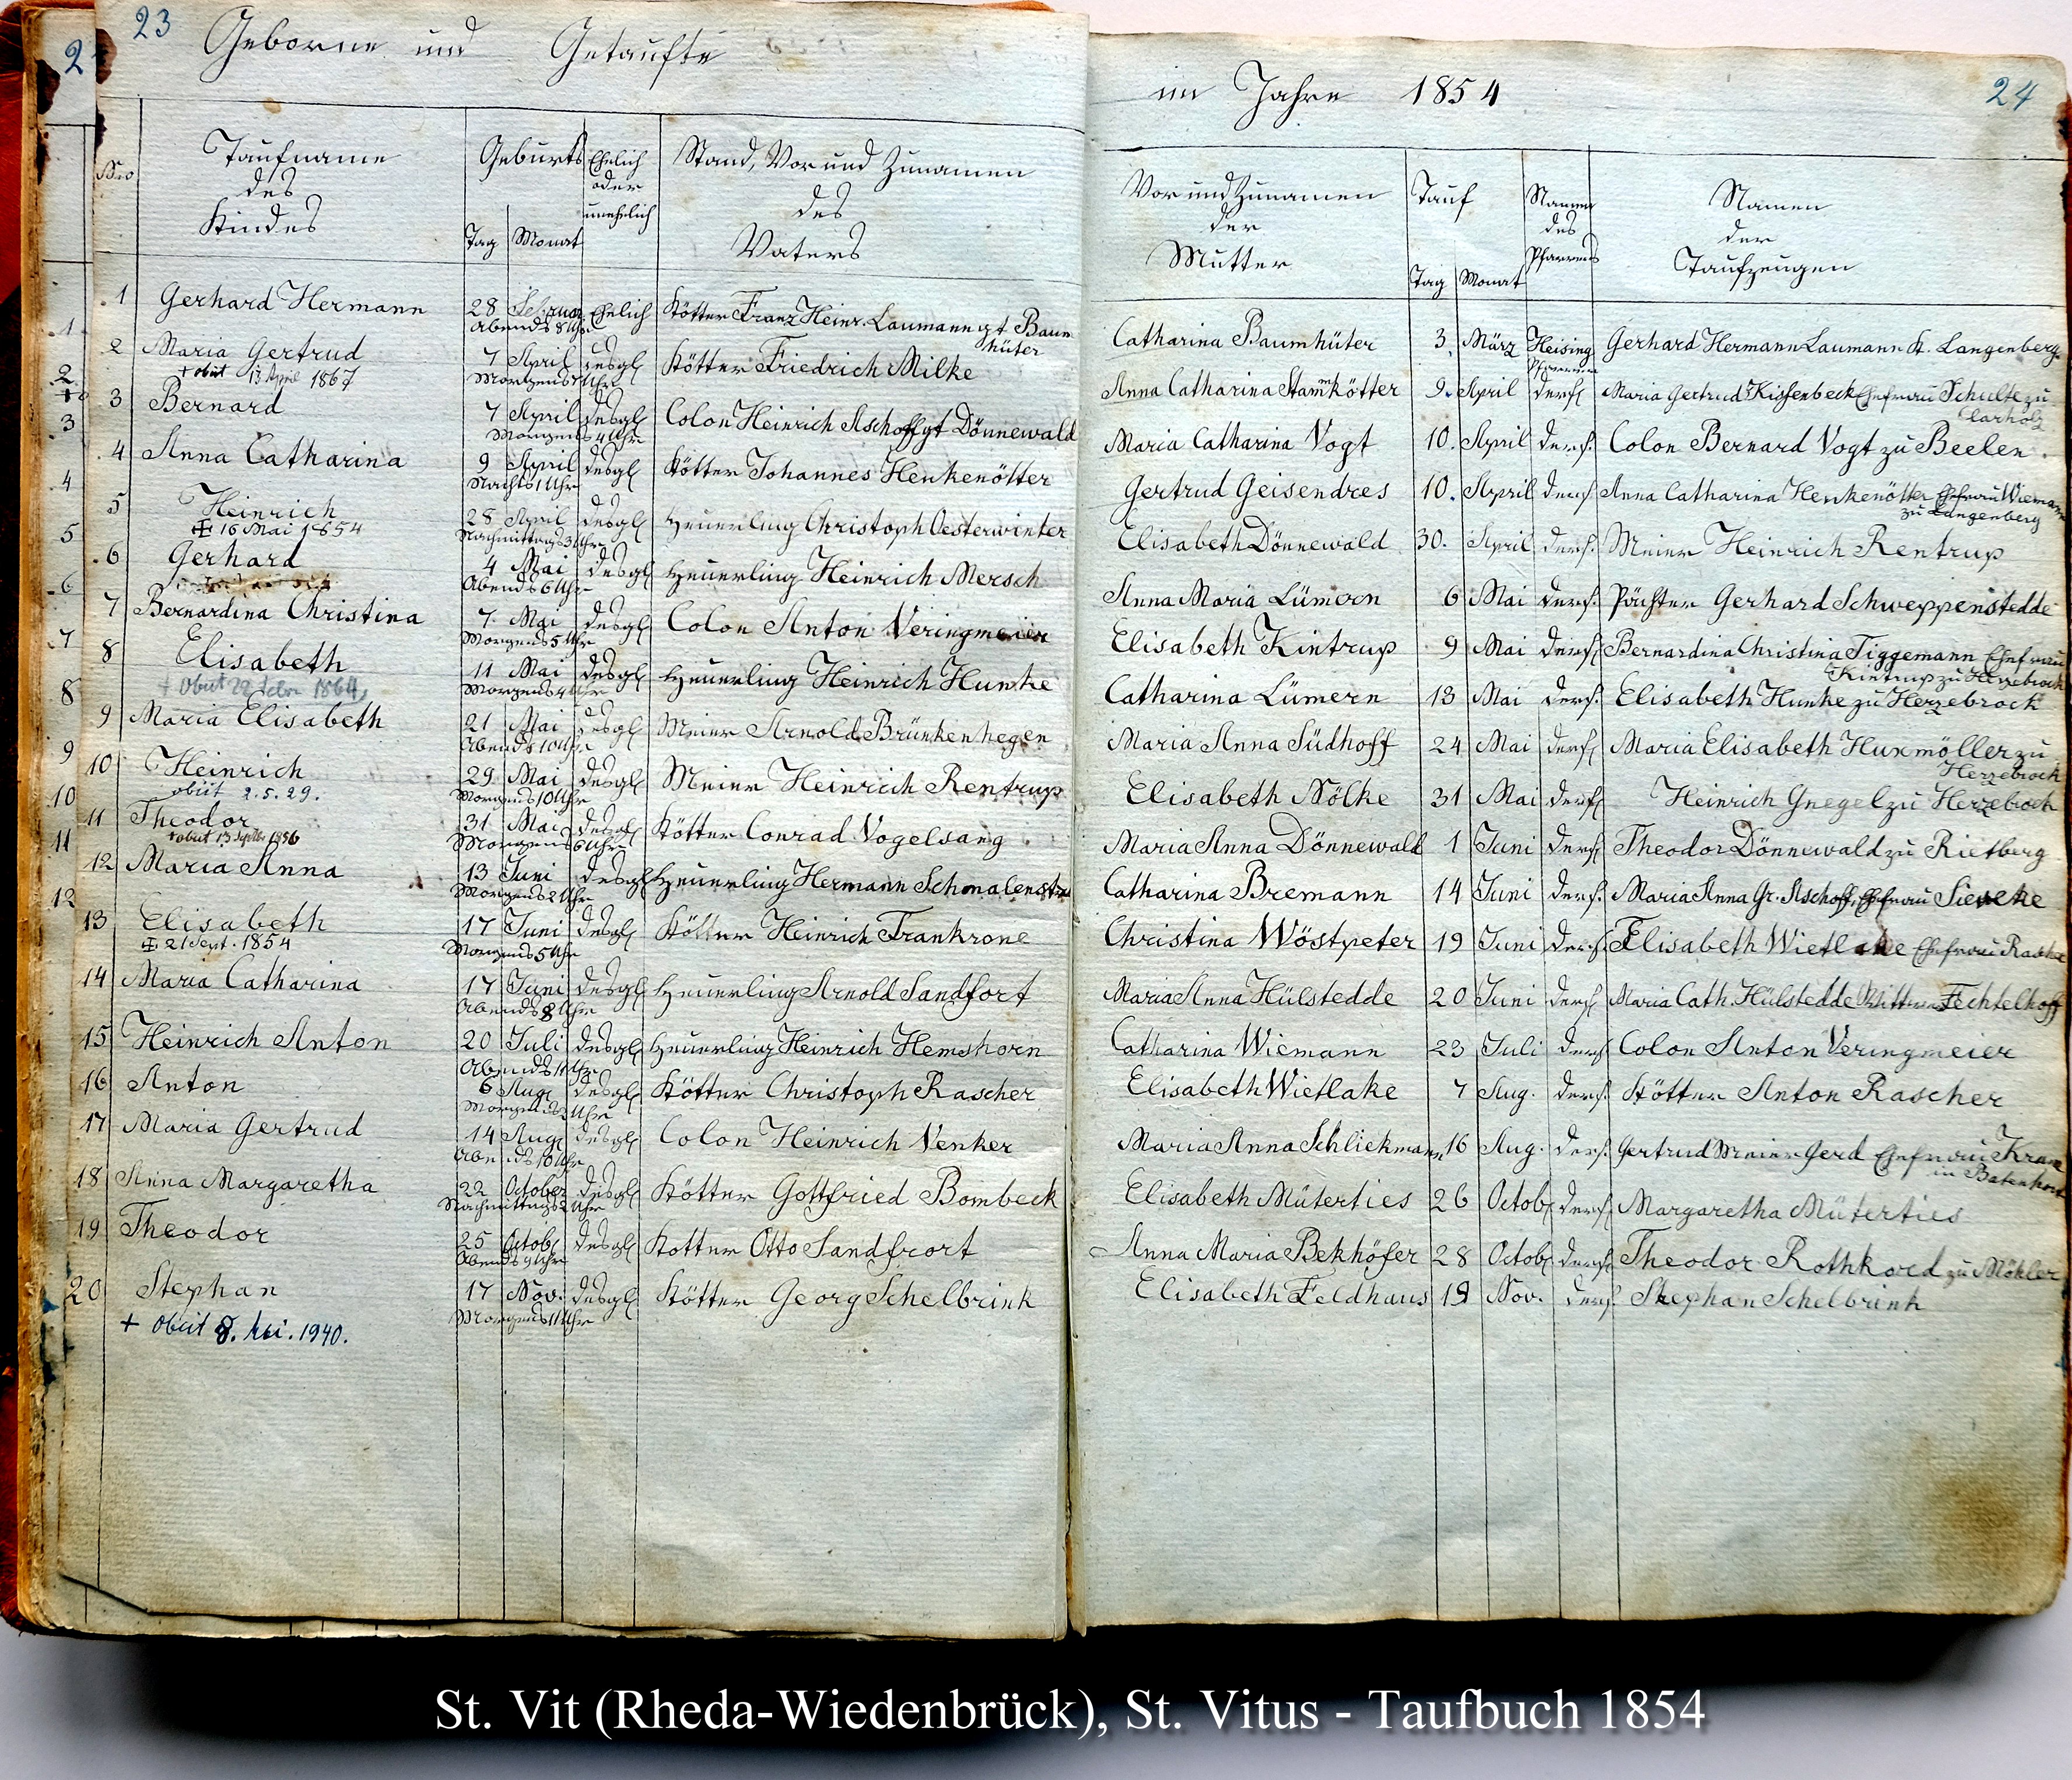 23 Geborne und Getaufte
2
Nro
Taufname
des
Kindes
Geburts
Tag Monat
Ehelich
oder
unehelich
Stand, Vor und Zunamen
des
Vaters
1 Gerhard Hermann 28 Februar Ehelich Kötter Franz Heinr. Laumann gt Baum
Abends 8 Uhr hüter
2 Maria Gertrud 7 April desgl Kötter Friedrich Milke
+ obiit 13 April 1867 Morgens Uhr
3 Bernard 7 April desgl Colon Heinrich Aschoff gt Dönnewald
Morgens 4 Uhr
4 Anna Catharina 9 April desgl Kötter Johannes Henkenötter
Nachts 1 Uhr
5 Heinrich 28 April desgl Heuerling Christoph Oesterwinter
16 Mai 1854 Nachmittags 3 Uhr
6 Gerhard 4 Mai desgl Heuerling Heinrich Mersch
Abends 6 Uhr
7 Bernardina Christina 7. Mai desgl Colon Anton Veringmeier
Morgens 5 Uhr
8 Elisabeth 11 Mai desgl Heuerling Heinrich Hunke
+ Obiit 22 Febr 1864 Morgens Uhr
9 Maria Elisabeth 21 Mai desgl Meier Arnold Brünkenhegen
Abends 10 Uhr
10 Heinrich 29 Mai desgl Meier Heinrich Rentrup
obiit 2.5.29. Morgens 10 Uhr
11 Theodor 31 Mai desgl Kötter Conrad Vogelsang
+ obiit 13 Septbr 1856 Morgens 6 Uhr
12 Maria Anna 13 Juni desgl Heuerling Hermann Schmalenstr
Morgens 2 Uhr
13 Elisabeth 17 Juni desgl Kötter Heinrich Frankrone
21 Sept. 1854 Morgens 5 Uhr
14 Maria Catharina 17 Juni desgl Heuerling Arnold Sandfort
Abends 8 Uhr
15 Heinrich Anton 20 Juli desgl Heuerling Heinrich Hemshorn
Abends 11 Uhr
16 Anton 6 Aug desgl Kötter Christoph Rascher
Morgens 2 Uhr
17 Maria Gertrud 14 Aug desgl Colon Heinrich Venker
Abends 10 Uhr
18 Anna Margaretha 22 October desgl Kötter Gottfried Bombeck
Nachmittags 2 Uhr
19 Theodor 25 Octob desgl Kotter Otto Sandfrort
Abends 9 Uhr
20 Stephan 17 Nov. desgl Kötter Georg Schelbrink
+ Obiit 8. 1940. Morgens 11 Uhr
1
2
3
4
5
6
7
8
9
10
11
12
im Jahre 1854 24
Vor und Zunamen
der
Mutter
Tauf
Tag Monat
Namen
des
Pfarrers
Namen
der
Taufzeugen
Catharina Baumhüter 3. März Heising Gerhard Hermann Laumann K. Langenberg
Pfarrer
Anna Catharina Stammkötter 9. April ders Maria Gertrud Kissenbeck Ehefrau Schulte zu
Clarholz
Maria Catharina Vogt 10. April ders. Colon Bernard Vogt zu Beelen.
Gertrud Geisendres 10. April ders. Anna Catharina Henkenötter Ehefrau Wiemann
zu Langenberg
Elisabeth Dönnewald 30. April ders. Meier Heinrich Rentrup
Anna Maria Lümern 6 Mai ders. Pächter Gerhard Schweppenstedde
Elisabeth Kintrup 9 Mai ders Bernardina Christina Tiggemann Ehefrau
Kintrup zu Herzebrock
Catharina Lümern 13 Mai ders. Elisabeth Hunke zu Herzebrock
Maria Anna Südhoff 24 Mai ders Maria Elisabeth Huxmöller zu
Herzebrock
Elisabeth Nölke 31 Mai ders Heinrich Gnegel zu Herzebrock
Maria Anna Dönnewald 1 Juni ders Theodor Dönnewald zu Rietberg
Catharina Bremann 14 Juni ders. Maria Anna Gr. Aschoff, Ehefrau Sieveke
Christina Wöstpeter 19 Juni ders. Elisabeth Wietlake Ehefrau
Maria Anna Hülstedde 20 Juni ders Maria Cath. Hülstedde Wittwe Fechtelhoff
Catharina Wiemann 23 Juli ders Colon Anton Veringmeier
Elisabeth Wietlake 7 Aug. ders. Kötter Anton Rascher
Maria Anna Schliekmann 16 Aug. ders. Gertrud Meier Gerd Ehefrau
in Batenhorst
Elisabeth Müterties 26 Octob ders. Margaretha Müterties
Anna Maria Bekhöfer 28 Octob ders Theodor Rothkord zu Möhler
Elisabeth Feldhaus 19 Nov. ders. Stephan Schelbrink
St. Vit (Rheda-Wiedenbrück), St. Vitus - Taufbuch 1854